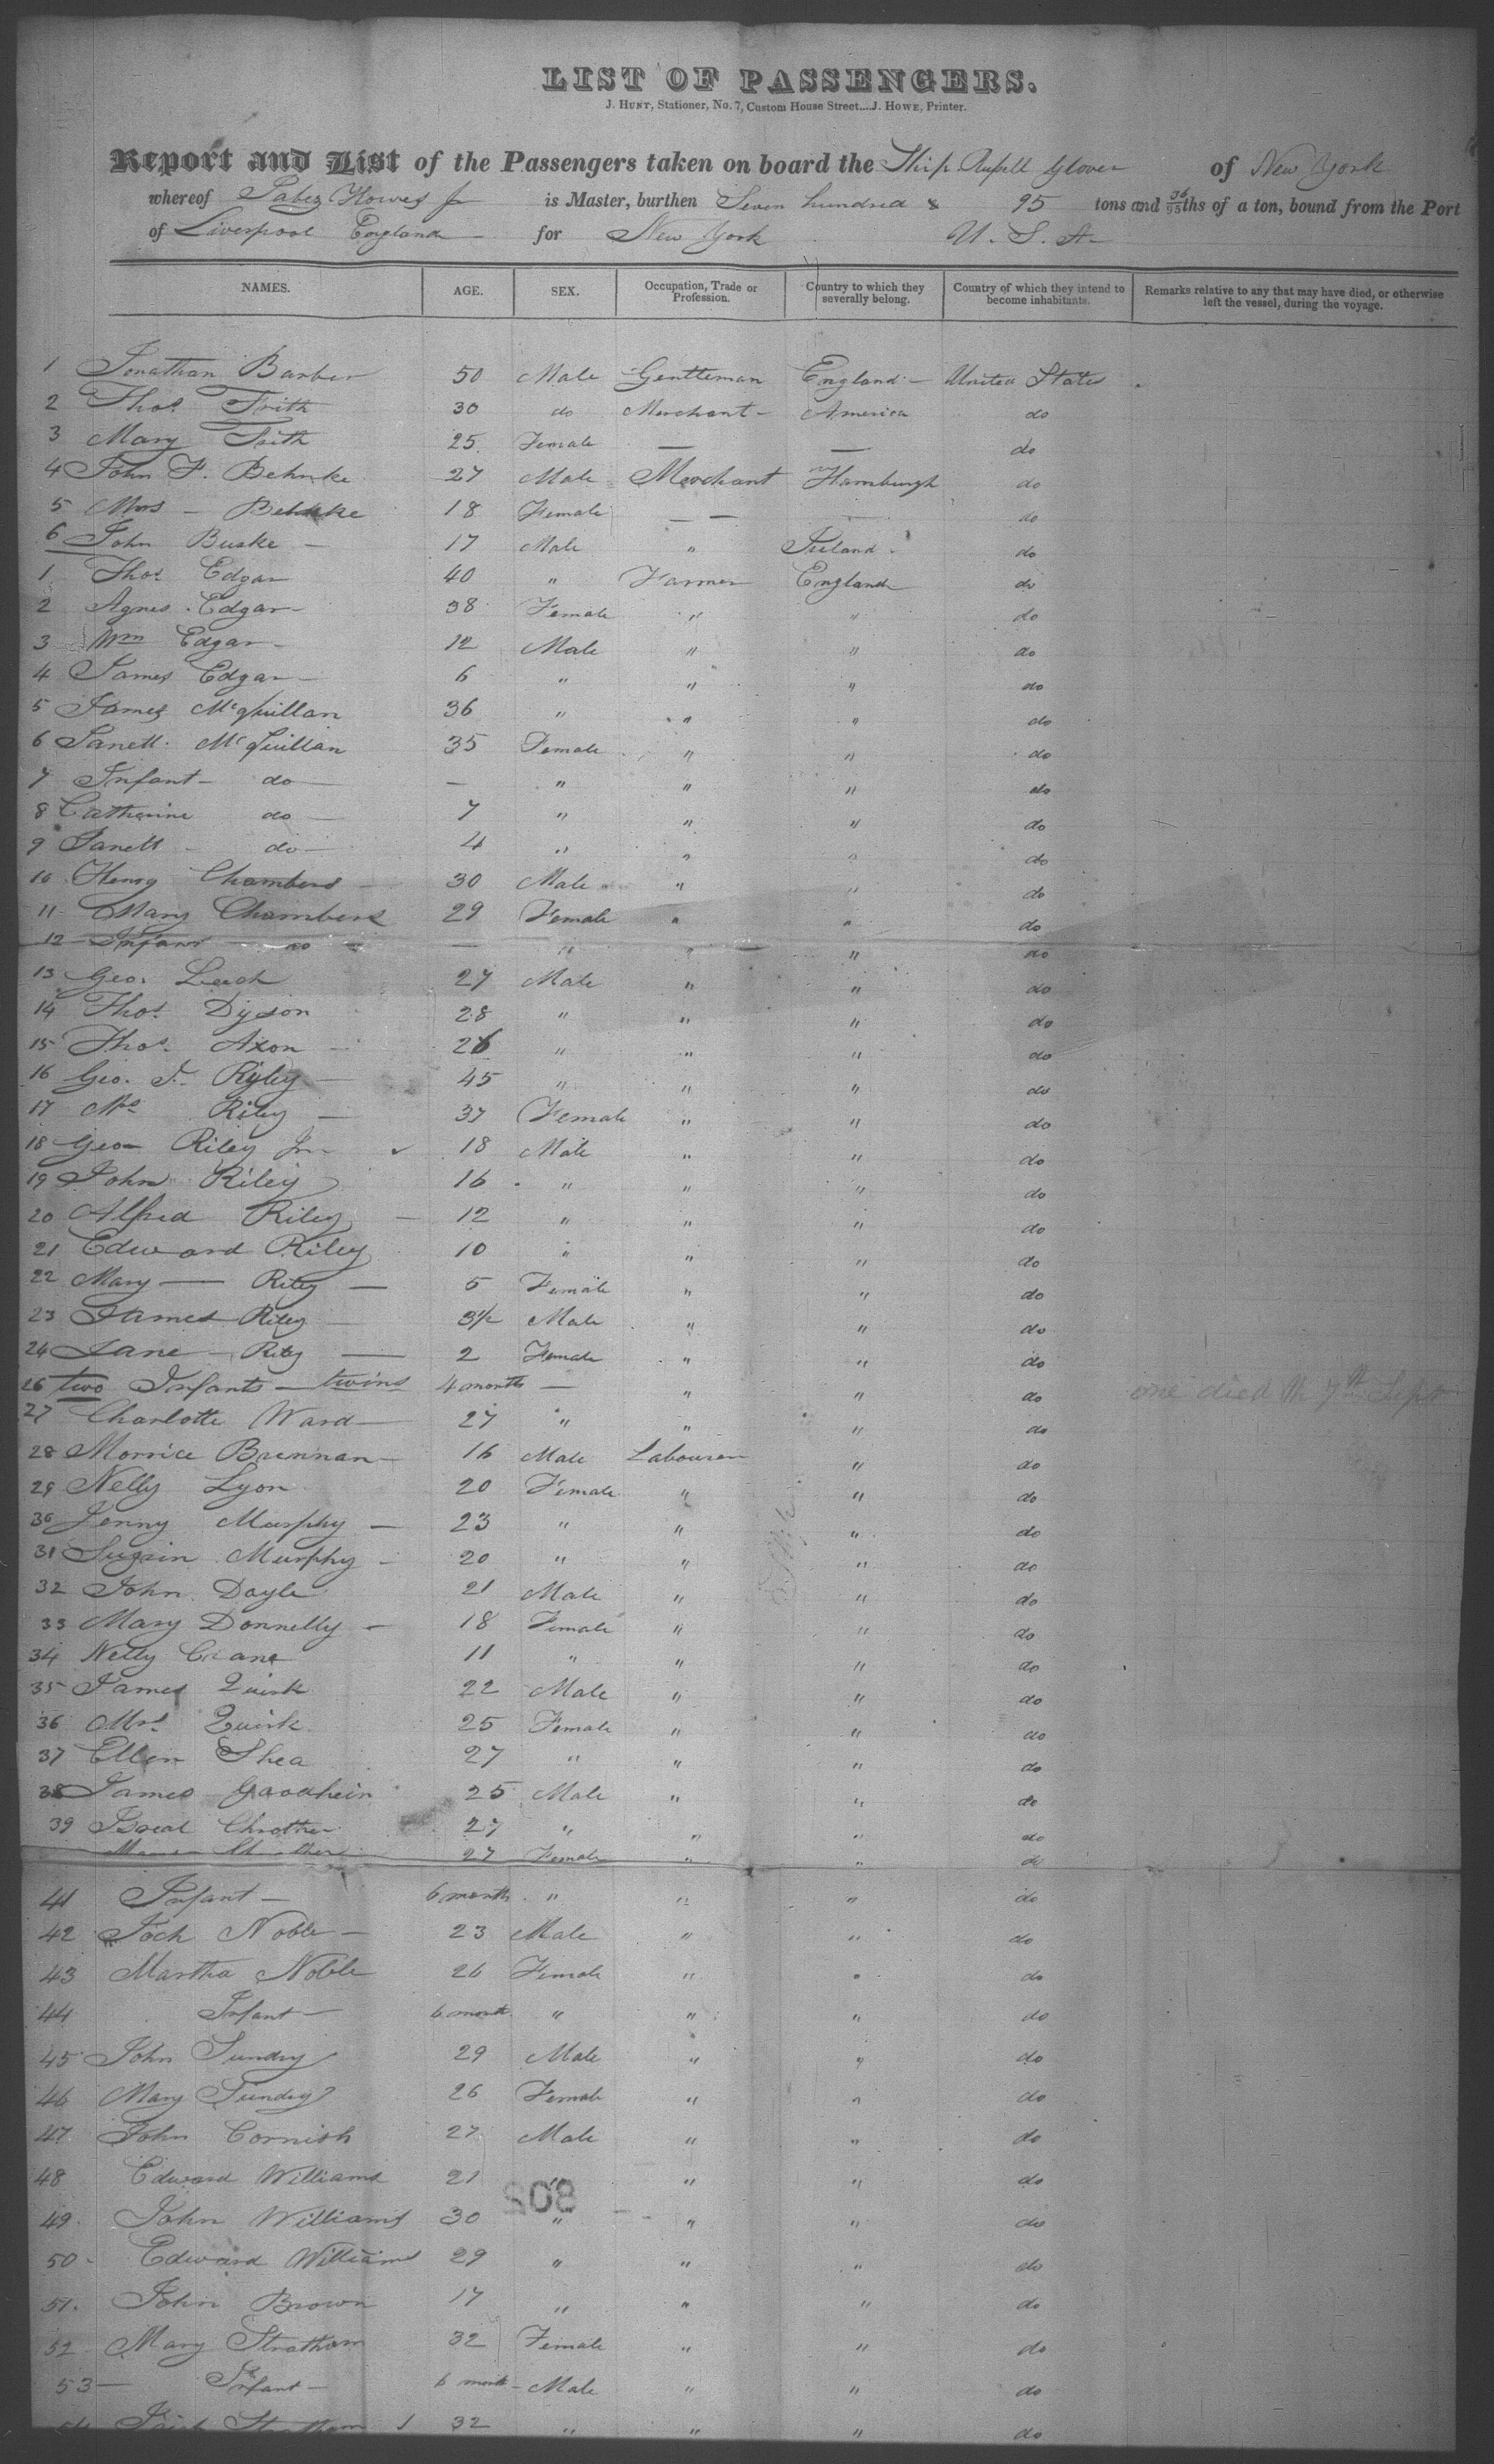 LIST OF PASSENGERS.
J. HUNT, Stationer, No. 7, Custom House Street....J. HOWE, Printer.
Report and List of the Passengers taken on board the Ship Russell Glover of New York
whereof Jabez Howes Jr is Master, burthen Seven hundred & 95 tons and 36/95ths of a ton, bound from the Port
of Liverpool England for New York U. S. A.
NAMES. AGE. SEX. Occupation, Trade or Profession. Country to which they severally belong. Country of which they intend to become inhabitants. Remarks relative to any that may have died, or otherwise left the vessel, during the voyage.
1 Jonathan Barber 50 Male Gentleman England United States
2 Thos. Frith 30 do Merchant America do
3 Mary Frith 25 Female — — do
4 John F. Behnke 27 Male Merchant Hamburgh do
5 Mrs Behnke 18 Female — — do
6 John Buske 17 Male " Ireland do
1 Thos Edgar 40 " Farmer England do
2 Agnes Edgar 38 Female " " do
3 Wm Edgar 12 Male " " do
4 James Edgar 6 " " " do
5 James McQuillan 36 " " " do
6 Janett McQuillan 35 Female " " do
7 Infant do — " " " do
8 Catherine do 7 " " " do
9 Janett do 4 " " " do
10 Henry Chambers 30 Male " " do
11 Mary Chambers 29 Female " " do
12 Infant do — " " " do
13 Geo. Leach 27 Male " " do
14 Thos. Dyson 28 " " " do
15 Thos. Axon 26 " " " do
16 Geo. J. Ryley 45 " " " do
17 Mrs Riley 37 Female " " do
18 Geo Riley Jnr 18 Male " " do
19 John Riley 16 " " " do
20 Alfred Riley 12 " " " do
21 Edward Riley 10 " " " do
22 Mary Riley 5 Female " " do
23 James Riley 3½ Male " " do
24 Jane Riley 2 Female " " do
26 two Infants twins 4 months — " " do one died the 7th Sept
27 Charlotte Ward 27 " " " do
28 Morrice Brennan 16 Male Labourer " do
29 Nelly Lyon 20 Female " " do
30 Jenny Murphy 23 " " " do
31 Murphy 20 " " " do
32 John Doyle 21 Male " " do
33 Mary Donnelly 18 Female " " do
34 Nelly Crane 11 " " " do
35 James Quirk 22 Male " " do
36 Mrs. Quirk 25 Female " " do
37 Ellen Shea 27 " " " do
38 James 25 Male " " do
39 27 " " " do
27 Female " " do
41 Infant 6 month " " " do
42 Noble 23 Male " " do
43 Martha Noble 26 Female " " do
44 Infant 6 month " " " do
45 John Sundry 29 Male " " do
46 Mary Sundry 26 Female " " do
47 John Cornish 27 Male " " do
48 Edward Williams 21 " " " do
802
49 John Williams 30 " " " do
50 Edward Williams 29 " " " do
51. John Brown 17 " " " do
52 Mary Stratham 32 Female " " do
53 Infant 6 month Male " " do
54 Stratham 32 " " " do